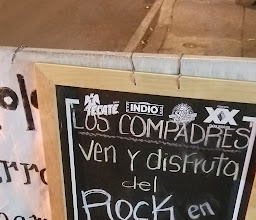 TECATE INDIO XX
LOS COMPADRES
VEN Y disfruta
del
ROCK en